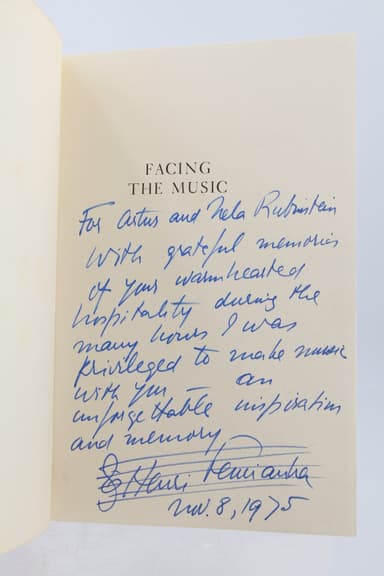 FACING
THE MUSIC
For Artur and Nela Rubinstein
with grateful memories
of your warmhearted
hospitality during the
many hours I was
privileged to make music
with you — an
unforgettable inspiration
and memory
Henri Temianka
Nov. 8, 1975